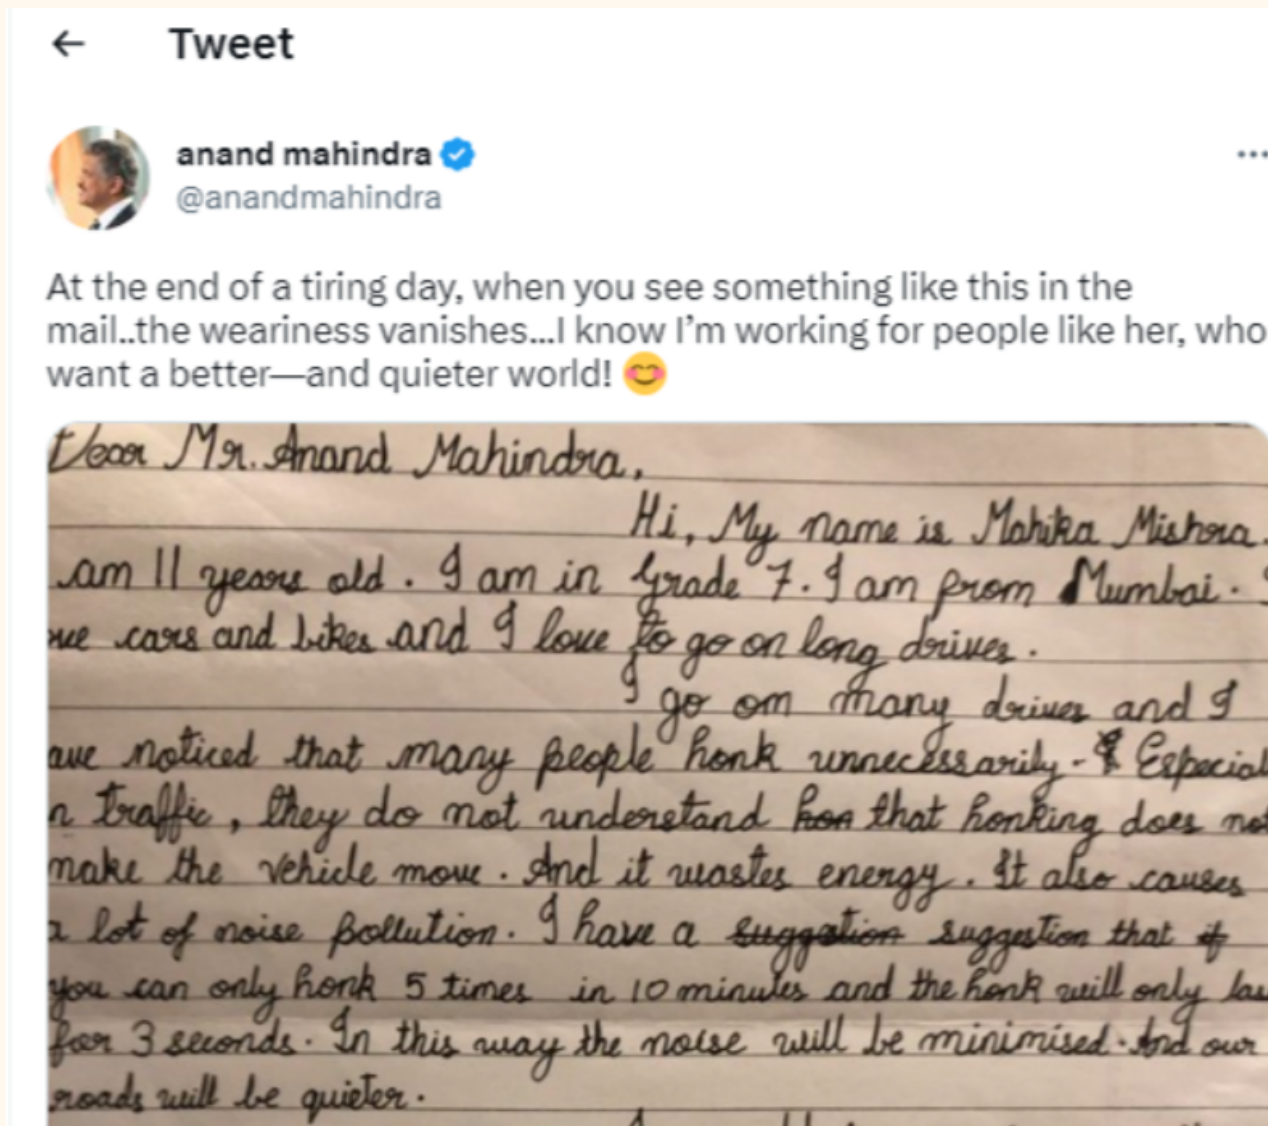 Tweet
anand mahindra
@anandmahindra
At the end of a tiring day, when you see something like this in the
mail..the weariness vanishes...I know I'm working for people like her, who
want a better—and quieter world! 😊
Dear Mr. Anand Mahindra,
Hi, My name is Mahika Mishra.
am 11 years old. I am in Grade 7. I am from Mumbai.
cars and bikes and I love to go on long drives.
I go on many drives and I
ave noticed that many people honk unnecessarily. Especial
n traffic, they do not understand hon that honking does not
make the vehicle move. And it wastes energy. It also causes
a lot of noise pollution. I have a suggestion that if
you can only honk 5 times in 10 minutes and the honk will only las
for 3 seconds. In this way the noise will be minimised. And our
roads will be quieter.